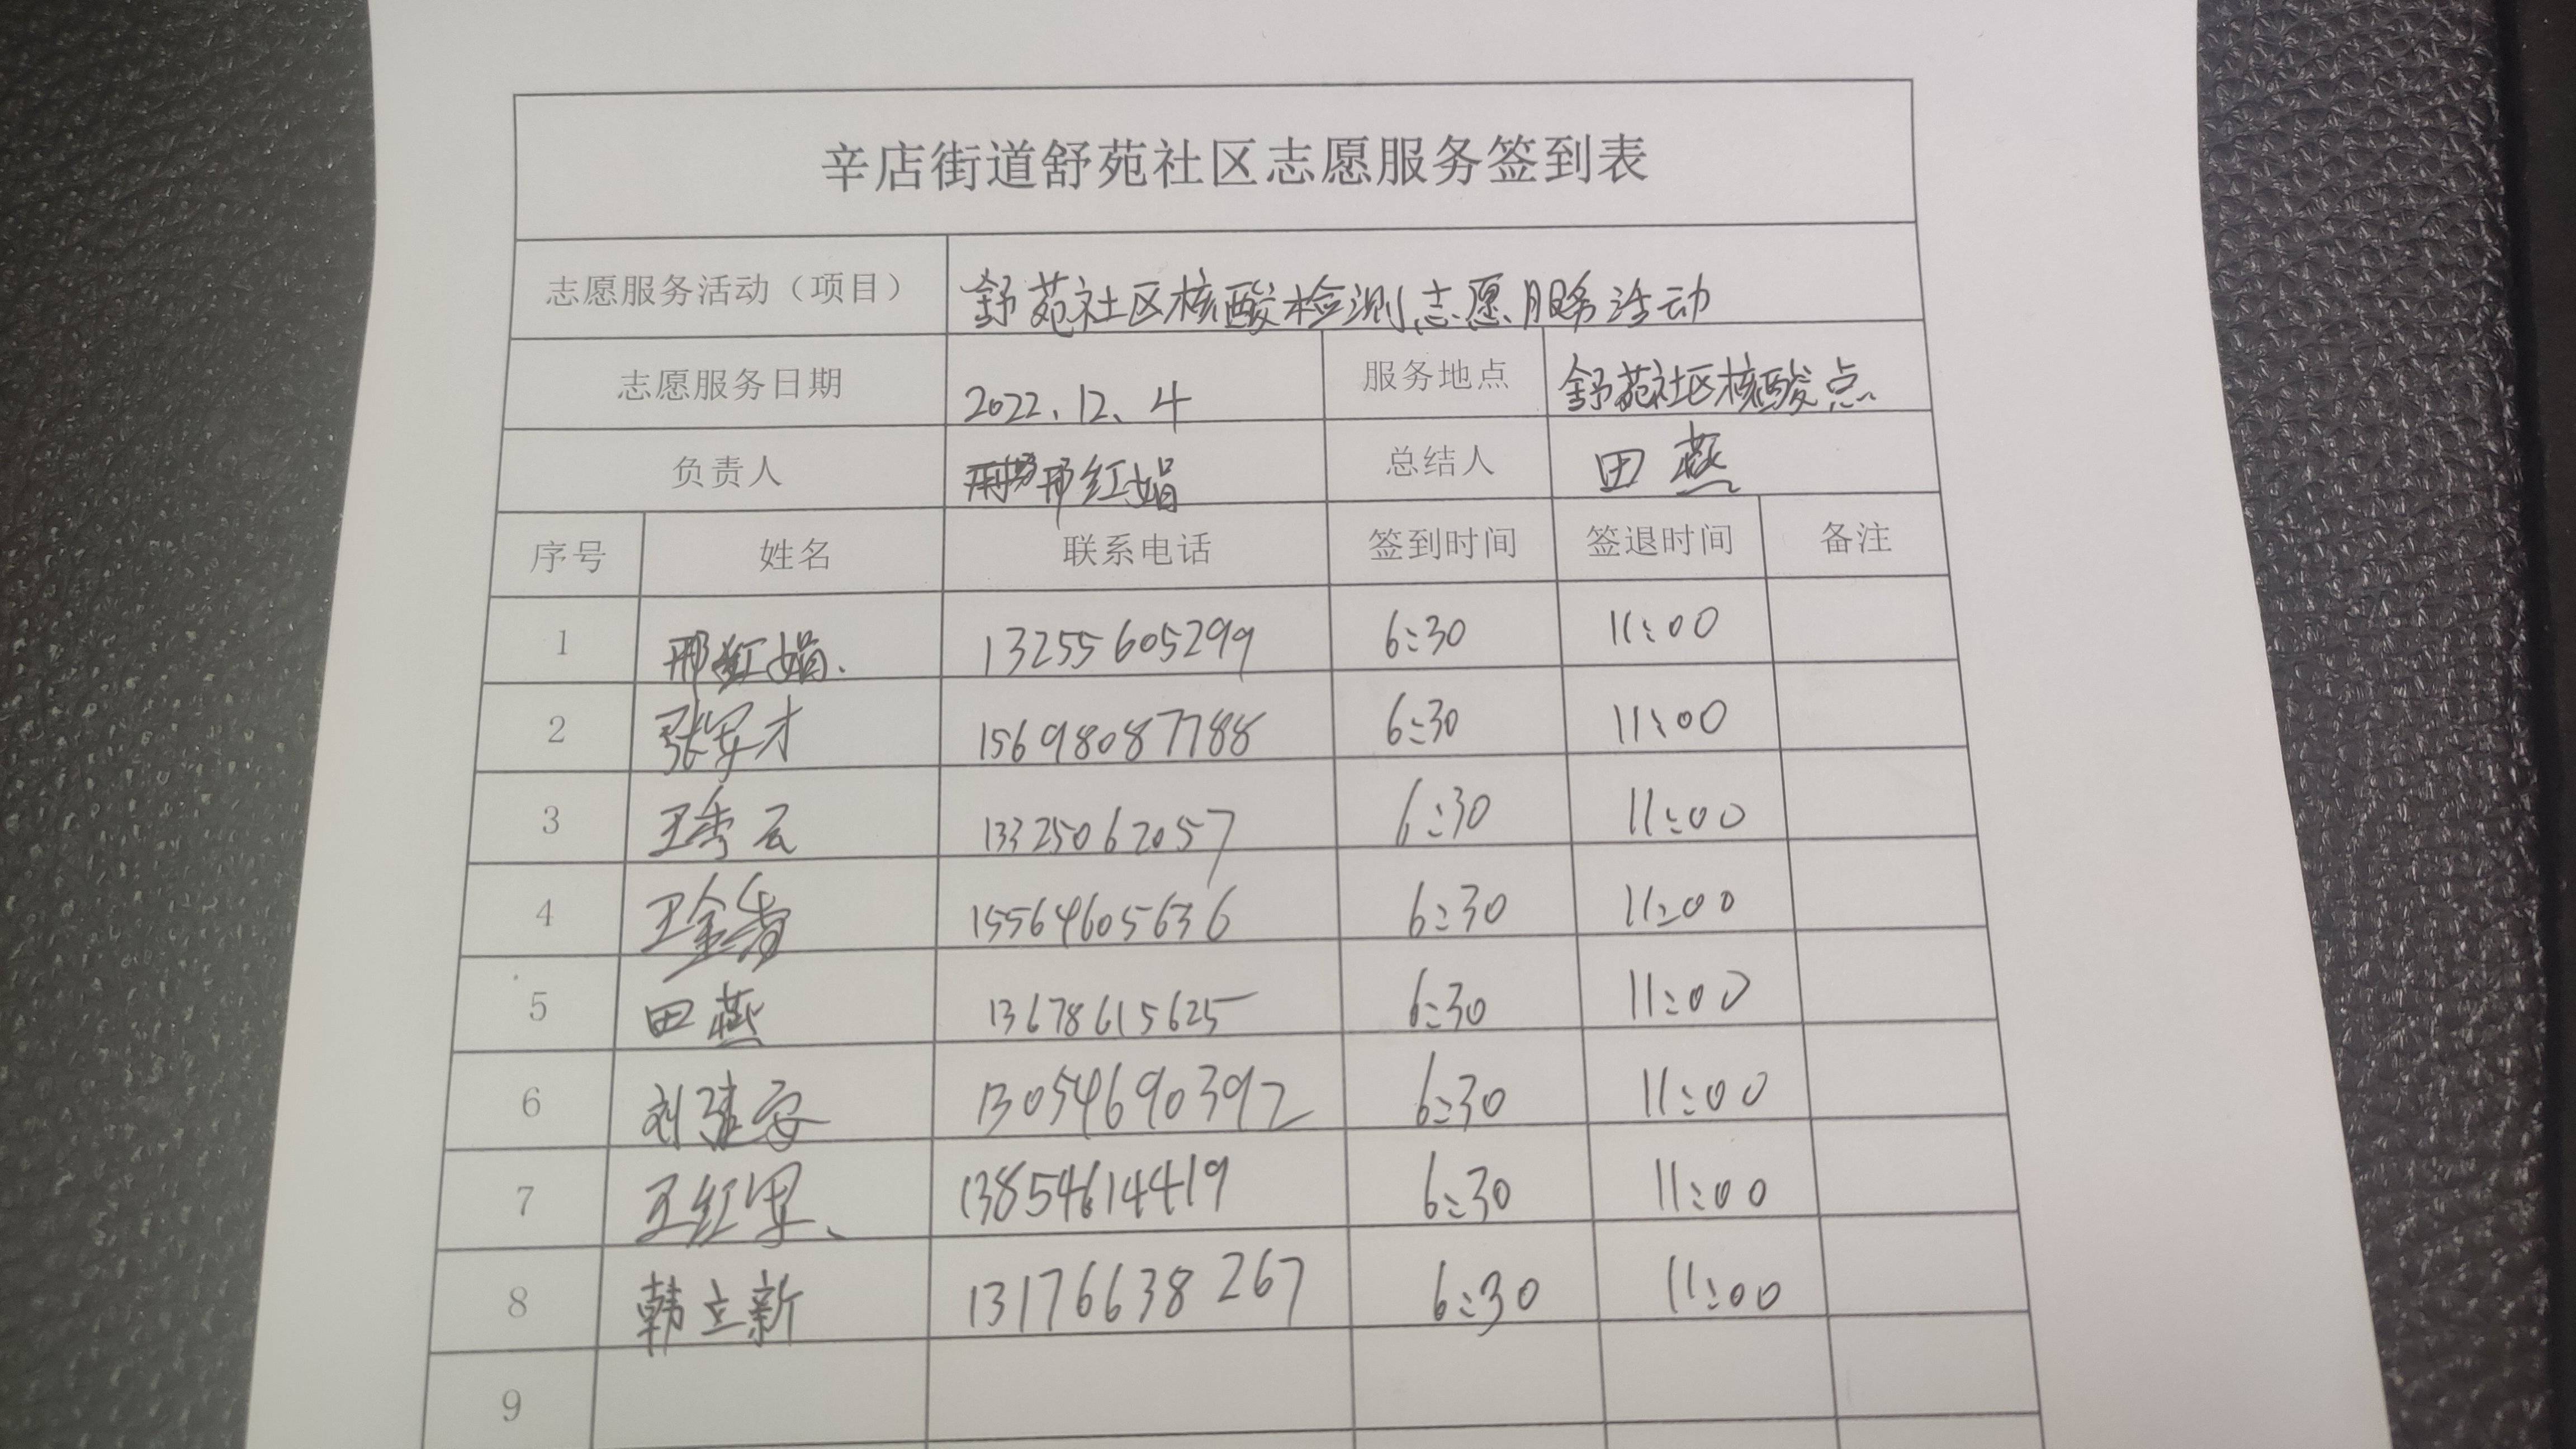 辛店街道舒苑社区志愿服务签到表
志愿服务活动（项目） 舒苑社区核酸检测志愿服务活动
志愿服务日期 2022.12.4 服务地点 舒苑社区核酸点
负责人 邢红娟 总结人 田燕
序号 姓名 联系电话 签到时间 签退时间 备注
1 邢红娟 13255605299 6:30 11:00
2 张军才 15698087788 6:30 11:00
3 王秀云 13325062057 6:30 11:00
4 王金 15564605636 6:30 11:00
5 田燕 13678615625 6:30 11:00
6 刘建安 13054690392 6:30 11:00
7 王红军 13854614419 6:30 11:00
8 韩立新 13176638267 6:30 11:00
9